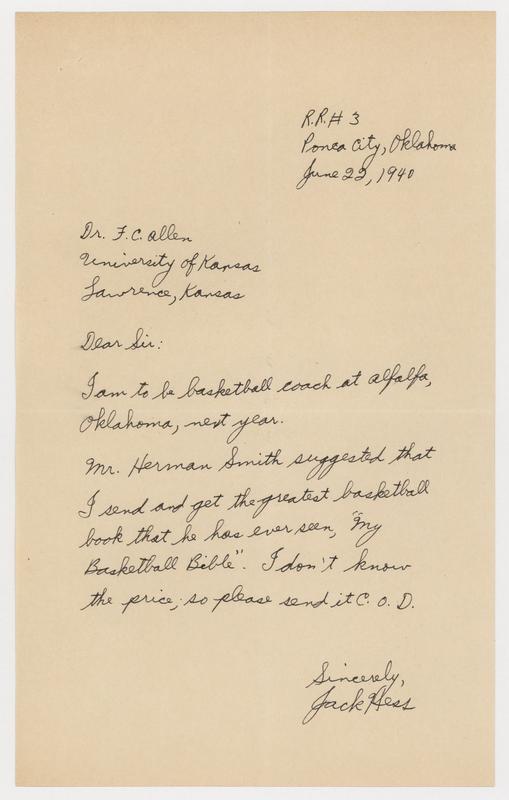 R.R.# 3
Ponca City, Oklahoma
June 22, 1940
Dr. F.C. Allen
University of Kansas
Lawrence, Kansas
Dear Sir:
I am to be basketball coach at Alfalfa,
Oklahoma, next year.
Mr. Herman Smith suggested that
I send and get the greatest basketball
book that he has ever seen, "My
Basketball Bible". I don't know
the price, so please send it C. O. D.
Sincerely,
Jack Hess